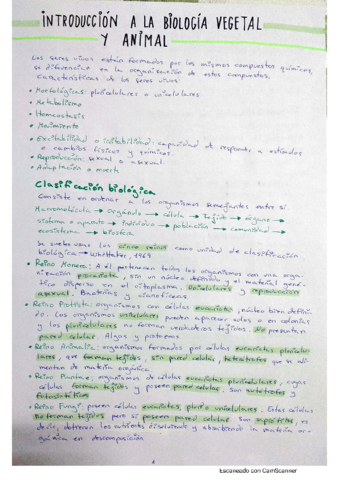 INTRODUCCIÓN A LA BIOLOGÍA VEGETAL
Y ANIMAL
Los seres vivos están formados por los mismos compuestos químicos,
se diferencian en la organización de estos compuestos.
Características de los seres vivos:
• Morfológicas: pluricelulares o unicelulares
• Metabolismo
• Homeostasis
• Movimiento
• Excitabilidad o irritabilidad: capacidad de responder a estímulos
o cambios físicos y químicos.
• Reproducción: sexual o asexual.
• Adaptación o muerte
Clasificación biológica
Consiste en ordenar a los organismos semejantes entre sí
Macromolécula → orgánulo → célula → Tejido → órgano →
sistema o aparato → individuo → población → comunidad →
ecosistema → biosfera
Se suele usar los cinco reinos como unidad de clasificación
biológica → Whittaker, 1969.
• Reino Monera: A él pertenecen todos los organismos con una orga-
nización procariota, sin un núcleo definido y el material gené-
tico disperso en el citoplasma, unicelulares y reproducción
asexual. Bacterias y cianofíceas
• Reino Protista: organismos con células eucariotas, núcleo bien defini-
do. Los organismos unicelulares pueden aparecer solos o en colonias
y los pluricelulares no forman verdaderos tejidos. No presentan
pared celular. Algas y protozoos
• Reino Animalia: organismos formados por células eucariotas pluricelu-
lares, que forman tejidos, sin pared celular, heterótrofos que se ali-
mentan de materia orgánica
• Reino Plantae: organismos de células eucariotas pluricelulares, cuyas
células forman tejidos y poseen pared celular. Son autótrofos y
fotosintéticos
• Reino Fungi: poseen células eucariotas, pluri o unicelulares. Estas células
no forman tejidos pero sí poseen pared celular. Son es
decir, obtienen los nutrientes disolviendo y absorbiendo la materia or-
gánica en descomposición
Escaneado con CamScanner